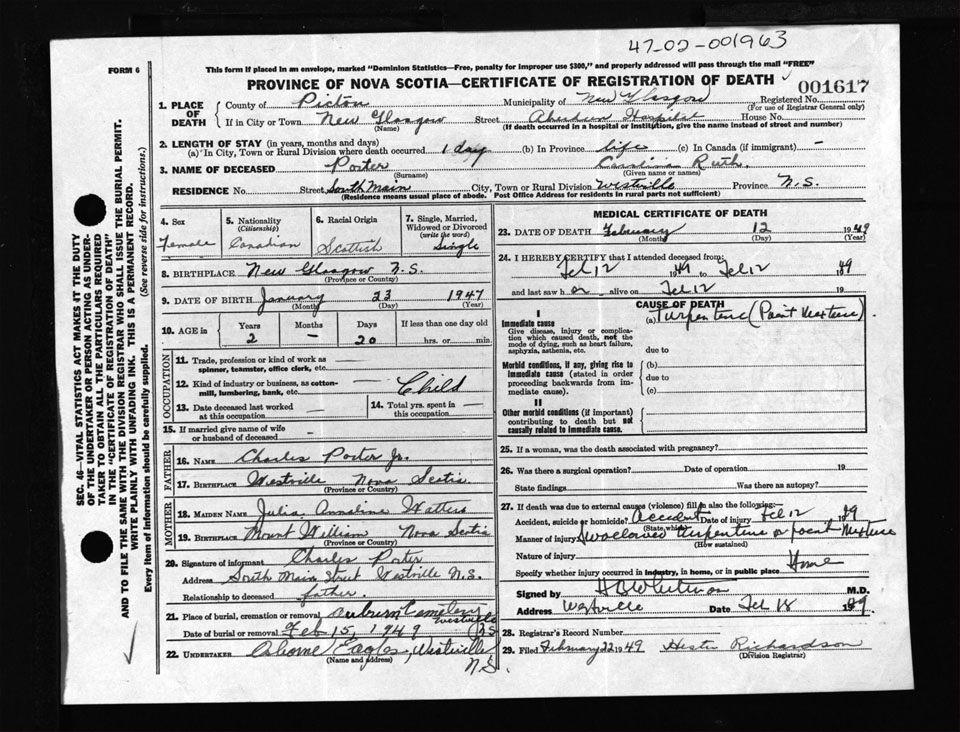 47-02-001963
FORM 6
This form if placed in an envelope, marked "Dominion Statistics—Free, penalty for improper use $300," and properly addressed will pass through the mail "FREE"
PROVINCE OF NOVA SCOTIA—CERTIFICATE OF REGISTRATION OF DEATH
001617
1. PLACE OF DEATH
County of Pictou Municipality of New Glasgow Registered No.
(For use of Registrar General only)
If in City or Town New Glasgow Street Aberdeen Hospital House No.
(Name) (If death occurred in a hospital or institution, give the name instead of street and number)
2. LENGTH OF STAY (in years, months and days)
(a) In City, Town or Rural Division where death occurred 1 day (b) In Province life (c) In Canada (if immigrant) —
3. NAME OF DECEASED Porter Ruth
(Surname) (Given name or names)
RESIDENCE No. Street South Main City, Town or Rural Division Westville Province N.S.
(Residence means usual place of abode. Post Office Address for residents in rural parts not sufficient)
4. Sex Female
5. Nationality (Citizenship) Canadian
6. Racial Origin Scottish
7. Single, Married, Widowed or Divorced (write the word) Single
8. BIRTHPLACE New Glasgow N.S.
(Province or Country)
9. DATE OF BIRTH January 23 1947
(Month) (Day) (Year)
10. AGE in Years Months Days If less than one day old
2 — 20 hrs. or min.
OCCUPATION
11. Trade, profession or kind of work as spinner, teamster, office clerk, etc. —
12. Kind of industry or business, as cotton-mill, lumbering, bank, etc. — Child
13. Date deceased last worked at this occupation —
14. Total yrs. spent in this occupation —
15. If married give name of wife or husband of deceased —
FATHER
16. NAME Charles Porter Jr.
17. BIRTHPLACE Westville Nova Scotia
(Province or Country)
MOTHER
18. MAIDEN NAME Julia Annaline Watters
19. BIRTHPLACE Mount William Nova Scotia
(Province or Country)
20. Signature of informant Charles Porter
Address South Main Street Westville N.S.
Relationship to deceased father.
21. Place of burial, cremation or removal Auburn Cemetery Westville N.S.
Date of burial or removal Feb 15, 1949
22. UNDERTAKER Osborne Eagles, Westville N.S.
(Name and address)
MEDICAL CERTIFICATE OF DEATH
23. DATE OF DEATH February 12 1949
(Month) (Day) (Year)
24. I HEREBY CERTIFY that I attended deceased from:
Feb 12 1949 to Feb 12 1949
and last saw her alive on Feb 12 1949
CAUSE OF DEATH
I
Immediate cause (a) Turpentine (Paint Mixture)
Give disease, injury or complication which caused death, not the mode of dying, such as heart failure, asphyxia, asthenia, etc.
due to
Morbid conditions, if any, giving rise to immediate cause (stated in order proceeding backwards from immediate cause).
(b)
due to
(c)
II
Other morbid conditions (if important) contributing to death but not causally related to immediate cause.
25. If a woman, was the death associated with pregnancy?
26. Was there a surgical operation? Date of operation 19
State findings Was there an autopsy?
27. If death was due to external causes (violence) fill in also the following:—
Accident, suicide or homicide? Accident Date of injury Feb 12 1949
(State which)
Manner of injury Swallowed turpentine or paint mixture
(How sustained)
Nature of injury
Specify whether injury occurred in industry, in home, or in public place Home
Signed by M.D.
Address Westville Date Feb 18 1949
28. Registrar's Record Number
29. Filed February 22 1949 Hester Richardson
(Division Registrar)
SEC. 46—VITAL STATISTICS ACT MAKES IT THE DUTY
OF THE UNDERTAKER OR PERSON ACTING AS UNDER-
TAKER TO OBTAIN ALL THE PARTICULARS REQUIRED
IN THE "CERTIFICATE OF REGISTRATION OF DEATH"
AND TO FILE THE SAME WITH THE DIVISION REGISTRAR WHO SHALL ISSUE THE BURIAL PERMIT.
WRITE PLAINLY WITH UNFADING INK. THIS IS A PERMANENT RECORD.
Every item of information should be carefully supplied. (See reverse side for instructions.)